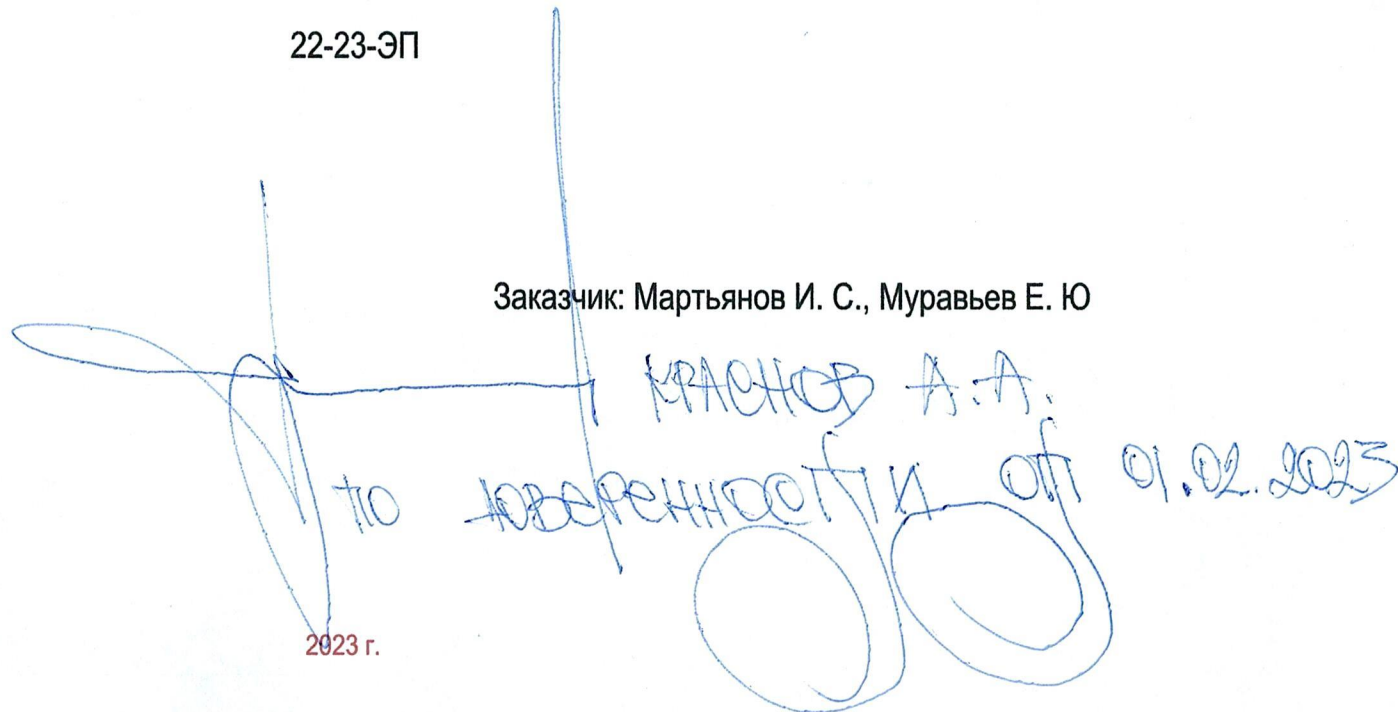 22-23-ЭП
Заказчик: Мартьянов И. С., Муравьев Е. Ю
КРАСНОВ А.А.
ПО ДОВЕРЕННОСТИ ОТ 01.02.2023
2023 г.